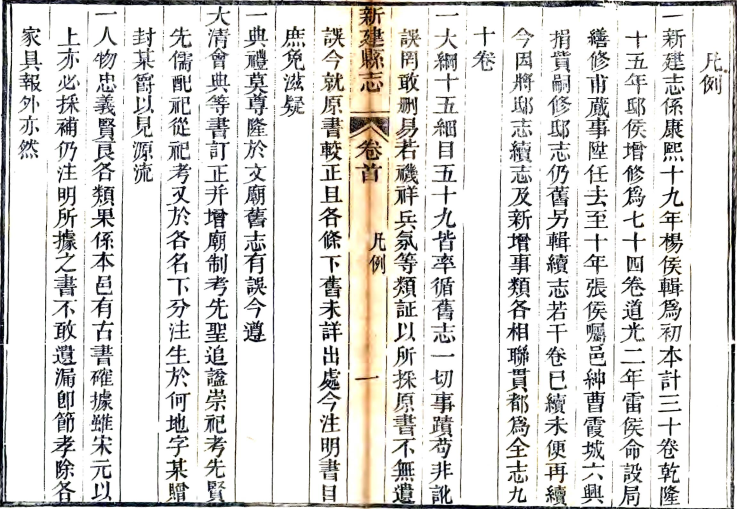 凡例
一新建志係康熙十九年楊侯輯爲初本計三十卷乾隆
十五年邸侯增修爲七十四卷道光二年雷侯命設局
繕修甫蕆事陞任去至十年張侯囑邑紳曹霞城六興
捐貲嗣修邸志仍舊另輯續志若干卷已續未便再續
今因將邸志續志及新增事類各相聯貫都爲全志九
十卷
一大綱十五細目五十九皆率循舊志一切事蹟苟非訛
誤罔敢刪易若禨祥兵氛等類証以所採原書不無遺
新建縣志
卷首
凡例
一
誤今就原書較正且各條下舊未詳出處今注明書目
庶免滋疑
一典禮莫尊隆於文廟舊志有誤今遵
大清會典等書訂正并增廟制考先聖追謚崇祀考先賢
先儒配祀從祀考又於各名下分注生於何地字某贈
封某爵以見源流
一人物忠義賢良各類果係本邑有古書確據雖宋元以
上亦必採補仍注明所據之書不敢遺漏卽節孝除各
家具報外亦然